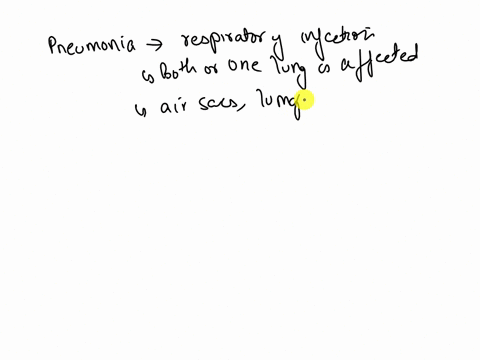 Pneumonia → respiratory infection
↳ Both or one lung is affected
↳ air sacs, lung